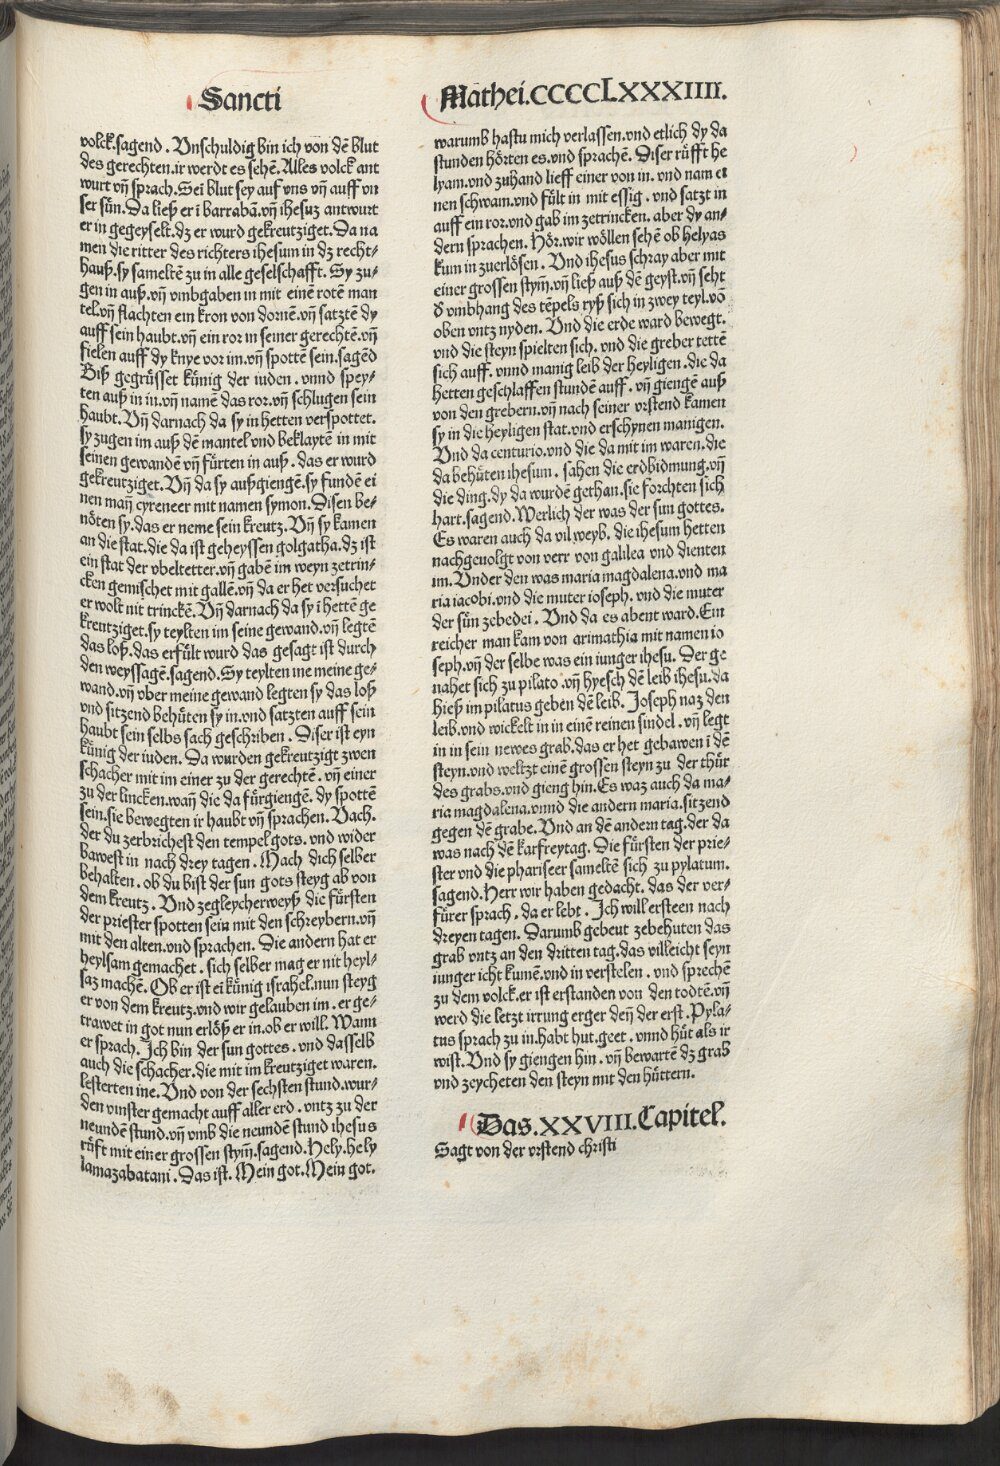 Sancti
volck.sagend. Vnschuldig bin ich von dē blut
des gerechten.ir werdt es sehē. Alles volck ant
wurt vn̄ sprach.Sei blut sey auf vns vn̄ auff vn
ser sün.Da ließ er ī barrabā.vn̄ ihesuz antwurt
er in gegeyselt.dz er wurd gekreutziget.Da na
men die ritter des richters ihesum in dz recht⸗
hauß.sy sameltē zu in alle geselschafft. Sy zu⸗
gen in auß.vn̄ vmbgaben in mit einē rotē man
tel.vn̄ flachten ein kron von dornē.vn̄ satztē dy
auff sein haubt.vn̄ ein ror in seiner gerechtē.vn̄
fielen auff dy knye vor im.vn̄ spottē sein.sagēd
Biß gegrüsset künig der iuden. vnnd spey⸗
ten auß in in.vn̄ namē das ror.vn̄ schlugen sein
haubt.Vn̄ darnach da sy in hetten verspottet.
sy zugen im auß dē mantel vnd beklaytē in mit
seinen gewandē vn̄ fürten in auß. das er wurd
gekreutziget.Vn̄ da sy außgiengē.sy fundē ei
nen man̄ cyreneer mit namen symon.Disen be⸗
nöten sy.das er neme sein kreutz.Vn̄ sy kamen
an die stat.die da ist geheyssen golgatha.dz ist
ein stat der vbeltetter.vn̄ gabē im weyn zetrin⸗
cken gemischet mit gallē.vn̄ da er het versuchet
er wolt nit trinckē.Vn̄ darnach da sy ī hettē ge
kreutziget.sy teylten im seine gewand.vn̄ legtē
das loß.das erfült wurd das gesagt ist durch
den weyssagē.sagend.Sy teylten ine meine ge⸗
wand.vn̄ vber meine gewand legten sy das loß
vnd sitzend behüten sy in.vnd satzten auff sein
haubt sein selbs sach geschriben. Diser ist eyn
künig der iuden. Da wurden gekreutzigt zwen
schacher mit im einer zu der gerechtē. vn̄ einer
zu der lincken.wan̄ die da fürgiengē. dy spottē
sein.sie bewegten ir haubt vn̄ sprachen. Vach.
der du zerbrichest den tempel gots. vnd wider
bawest in nach drey tagen. Mach dich selber
behalten. ob du bist der sun gots steyg ab von
dem kreutz. Vnd zegleycherweyß die fürsten
der priester spotten sein mit den schreybern.vn̄
mit den alten.vnd sprachen. Die andern hat er
heylsam gemachet. sich selber mag er nit heyl⸗
saz machē. Ob er ist ei künig israhel.nun steyg
er von dem kreutz.vnd wir gelauben im. er ge⸗
trawet in got nun erlöß er in.ob er will. Wann
er sprach. Ich bin der sun gottes. vnd dasselb
auch die schacher.die mit im kreutziget waren.
lesterten ine. Vnd von der sechsten stund.wur⸗
den vinster gemacht auff aller erd. vntz zu der
neundē stund.vn̄ vmb die neundē stund ihesus
rüft mit einer grossen stym̄.sagend.Hely.hely
lamazabatani. Das ist. Mein got.Mein got.
Mathei.CCCCLXXXIIII.
warumb hastu mich verlassen.vnd etlich dy da
stunden hörten es.vnd sprachē. Diser rüfft he
lyam.vnd zuhand lieff einer von in. vnd nam ei
nen schwam.vnd fült in mit essig. vnd satzt in
auff ein ror.vnd gab im zetrincken. aber dy an⸗
dern sprachen. Hör.wir wöllen sehē ob helyas
kum in zuerlösen. Vnd ihesus schray aber mit
einer grossen stym̄.vn̄ ließ auß dē geyst.vn̄ seht
d vmbhang des tēpels ryß sich in zwey teyl.vō
oben vntz nyden. Vnd die erde ward bewegt.
vnd die steyn spielten sich. vnd die greber tettē
sich auff. vnnd manig leib der heyligen.die da
hetten geschlaffen stundē auff. vn̄ giengē auß
von den grebern.vn̄ nach seiner vrstend kamen
sy in die heyligen stat.vnd erschynen manigen.
Vnd da centurio.vnd die da mit im waren.die
da behüten ihesum. sahen die erdbidmung.vn̄
die ding.dy da wurdē gethan.sie forchten sich
hart.sagend.Werlich der was der sun gottes.
Es waren auch da vil weyb. die ihesum hetten
nachgeuolgt von verr von galilea vnd dienten
im. Vnder den was maria magdalena.vnd ma
ria iacobi.vnd die muter ioseph. vnd die muter
der sün zebedei. Vnd da es abent ward.Ein
reicher man kam von arimathia mit namen io
seph.vn̄ der selbe was ein iunger ihesu. Der ge
nahet sich zu pilato.vn̄ hyesch dē leib ihesu.da
hieß im pilatus geben dē leib. Joseph naz den
leib.vnd wickelt in in einē reinen sindel. vn̄ legt
in in sein newes grab.das er het gebawen ī dē
steyn.vnd weltzt einē grossen steyn zu der thür
des grabs.vnd gieng hin.Es waz auch da ma⸗
ria magdalena.vnnd die andern maria.sitzend
gegen dē grabe.Vnd an dē andern tag.der da
was nach dē karfreytag. Die fürsten der prie⸗
ster vnd die phariseer sameltē sich zu pylatum.
sagend.Herr wir haben gedacht. das der ver⸗
fürer sprach. da er lebt. Ich will ersteen nach
dreyen tagen. Darumb gebeut zebehuten das
grab vntz an den dritten tag.das villeicht seyn
iunger icht kumē.vnd in verstelen. vnd sprechē
zu dem volck.er ist erstanden von den todtē.vn̄
werd die letzt irrung erger den̄ der erst. Pyla⸗
tus sprach zu in.habt hut.geet. vnnd hüt als ir
wist. Vnd sy giengen hin. vn̄ bewartē dz grab
vnd zeycheten den steyn mit den hüttern.
Das.XXVIII.Capitel.
Sagt von der vrstend christi